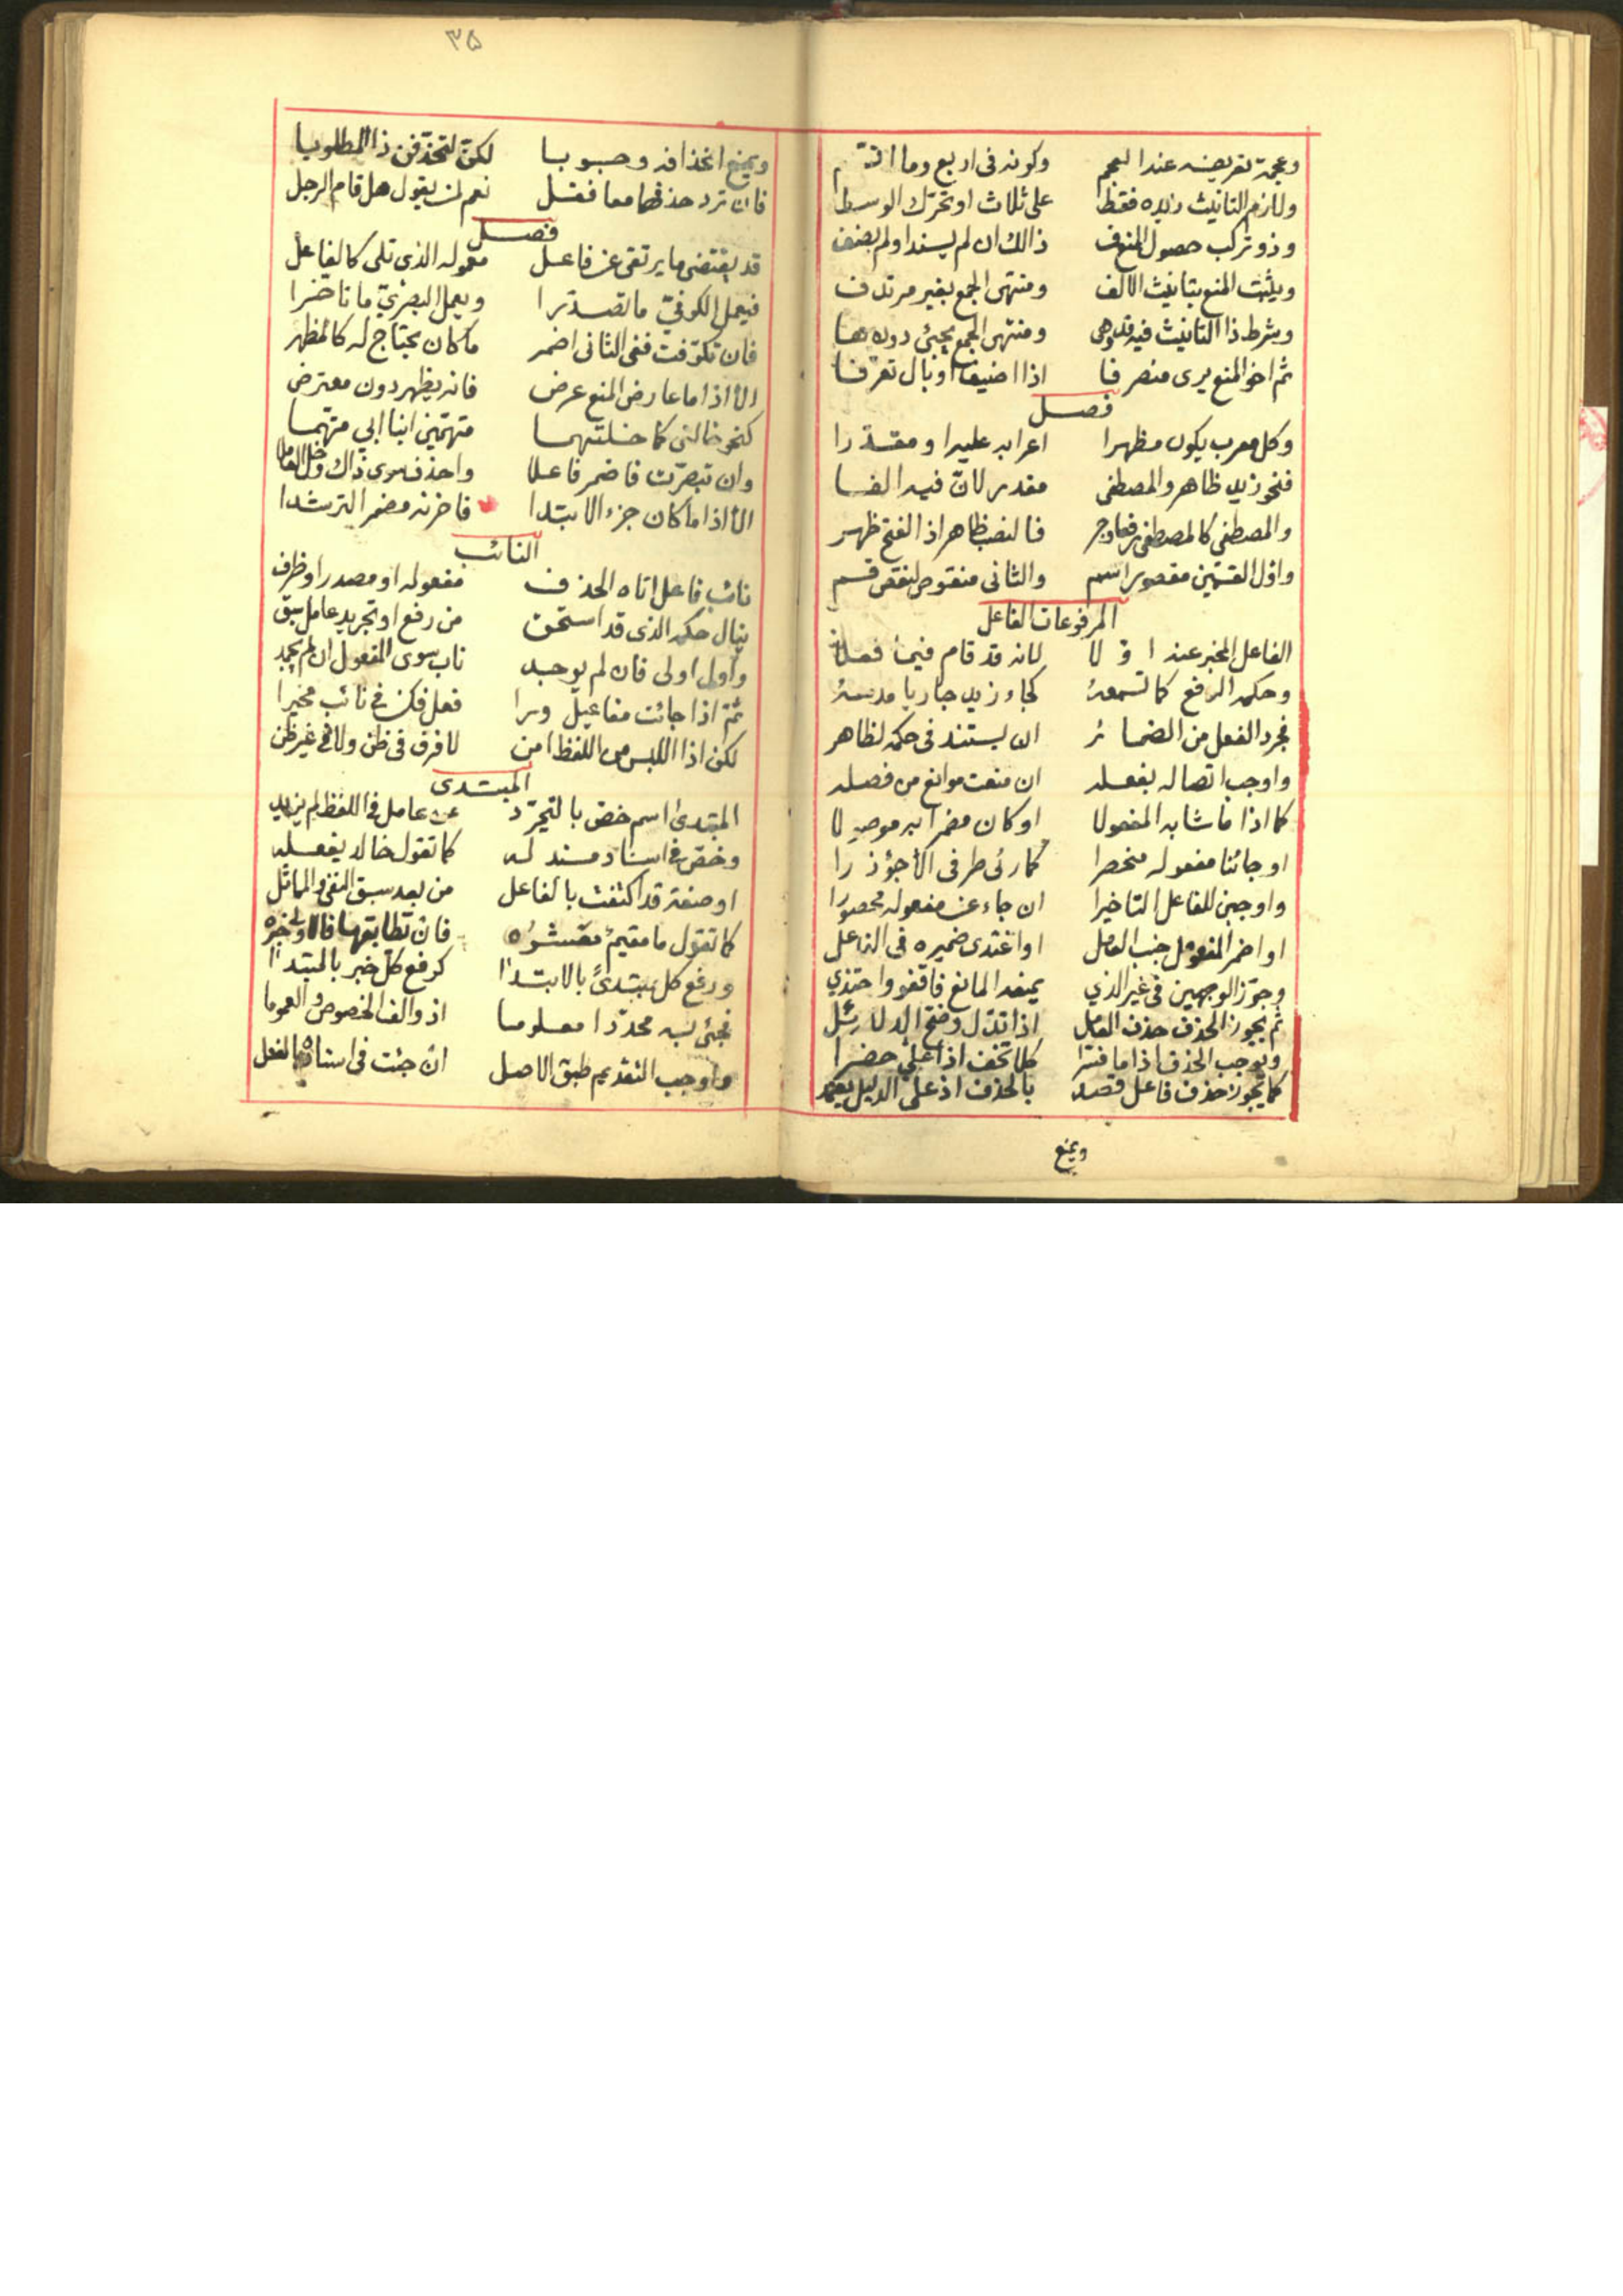 وعجمة تعريفه عند العجم وكونه في اربع وما
ولازم التانيث زيده فقط على ثلاث او تحرك الوسطا
وذو تركب حصول المنع ذالك ان لم يسندا ولم يضف
ويثبت المنع بتانيث الالف ومنتهى الجمع بغير مرتدف
ويشرط ذا التانيث فيه ومنتهى الجمع يجئ دون ها
ثم اخو المنع يرى منصرفا اذا اضيف او بال تعرفا
فصل
وكل معرب يكون مظهرا اعرابه عليه او مقدرا
فنحو زيد ظاهر والمصطفى مقدر لان فيه الفا
والمصطفي كالمصطفى رفعا وجر فالنصب ظاهر اذ الفتح ظهر
واول القسمين مقصورا سم والثاني منقوص لنقص قسم
المرفوعات الفاعل
الفاعل المخبر عنه اولا لانه قد قام فيما فعلا
وحكمه الرفع كما تسمعه كجاء زيد جاريا مدمعه
فجرد الفعل من الضمائر ان يستند في حكمه لظاهر
واوجب اتصاله بفعله ان منعت موانع من فصله
كما اذا ما شابه المفعولا او كان مضمرا به موصولا
او جائنا مفعوله منحصرا كما رئى طرفي الا جؤذرا
واوجبن للفاعل التاخيرا ان جاء عن مفعوله محصورا
او اضمر المفعول جنب العامل او اغتدى ضميره في الفاعل
وجوز الوجهين في غير الذي يمنعه المانع فاقفو واحتذي
ثم يجوز الحذف حذف العامل اذا تدل وضح الدلائل
ويوجب الحذف اذا ما فسرا كلا تخف اذا علي حضرا
كما يجوز حذف فاعل قصد بالحذف اذ على الدليل يعتمد
ويمنع
٣٥
ويمنع انحذافه وجوبا لكن لتحذفن ذا المطلوبا
فان ترد حذفهما معا فقل نعم لمن يقول هل قام الرجل
فصل
قد يقتضي ما يرتقى عن فاعل معموله الذي تلى كالفاعل
فيعمل الكوفي ما تصدرا ويعمل البصري ما تاخرا
فان تكوفت ففي الثاني اضمر ما كان يحتاج له كالمظهر
الا اذا ما عارض المنع عرض فانه يظهر دون معترض
كنحو خالني كما خلتهما متهمين ابنا ابي متهما
وان تبصرت فاضمر فاعلا واحذف سوى ذاك وخل العاملا
الا اذا ما كان جزء الابتدا فاخرنه مضمرا لترشدا
النائب
نائب فاعل اتاه الحذف مفعوله او مصدر او ظرف
ينال حكمه الذي قد استحق من رفع او تجريد عامل سبق
واول اولى فان لم يوجد ناب سوى المفعول ان لم يجمد
ثم اذا جائت مفاعيل ورا فعل فكن في نائب مخيرا
لكن اذا اللبس من اللفظ امن لا فرق في ظن ولا في غير ظن
المبتدى
المبتدى اسم خص بالتجرد عن عامل في اللفظ لم يزيد
وخص في اسناد مسند له كما تقول خالد يفعله
او صفة قد اكتفت بالفاعل من بعد سبق النفي والمماثل
كما تقول ما مقيم معشره فان تطابقها فالاولى خبره
ورفع كل مبتدئ بالابتدا كرفع كل خبر بالمبتدا
فجئ به محددا معلوما اذ والف الخصوص والعموما
واوجب التقديم طبق الاصل ان جئت في اسناده بالفعل